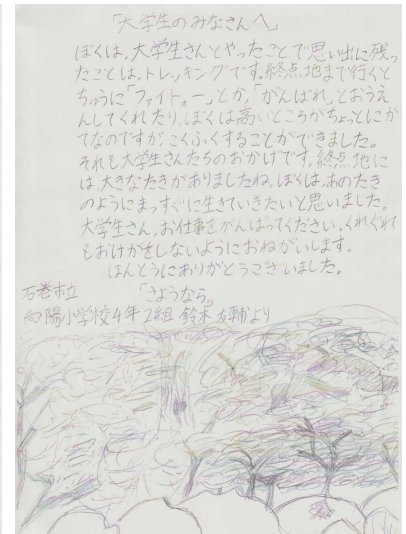 「大学生のみなさんへ」
ぼくは、大学生さんとやったことで思い出に残っ
たことは、トレッキングです。終点地まで行くと
ちゅうに「ファイトォー」とか、「がんばれ」とおうえ
んしてくれたり、ぼくは高いところがちょっとにが
てなのですが、こくふくすることができました。
それも大学生さんたちのおかげです。終点地に
は、大きなたきがありましたね。ぼくは、あのたき
のようにまっすぐに生きていきたいと思いました。
大学生さん、お仕事をがんばってください。くれぐれ
もおけがをしないようにおねがいします。
ほんとうにありがとうございました。
「さようなら」
石巻市立
向陽小学校4年2組 鈴木 右輔より